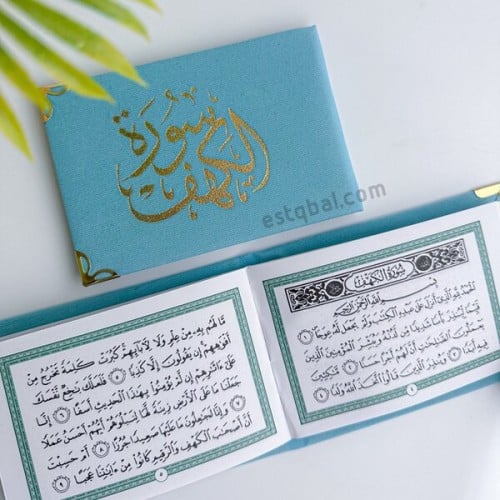 سورة
الكهف
estqbal.com
سُورَةُ الكَهْفِ
بِسْمِ ٱللَّهِ ٱلرَّحْمَٰنِ ٱلرَّحِيمِ
ٱلْحَمْدُ لِلَّهِ ٱلَّذِىٓ أَنزَلَ عَلَىٰ عَبْدِهِ ٱلْكِتَٰبَ وَلَمْ يَجْعَل لَّهُۥ عِوَجَاۜ ١
قَيِّمًا لِّيُنذِرَ بَأْسًا شَدِيدًا مِّن لَّدُنْهُ وَيُبَشِّرَ ٱلْمُؤْمِنِينَ ٱلَّذِينَ
يَعْمَلُونَ ٱلصَّٰلِحَٰتِ أَنَّ لَهُمْ أَجْرًا حَسَنًا ٢ مَّٰكِثِينَ
فِيهِ أَبَدًا ٣ وَيُنذِرَ ٱلَّذِينَ قَالُوا۟ ٱتَّخَذَ ٱللَّهُ وَلَدًا ٤
٤
مَّا لَهُم بِهِۦ مِنْ عِلْمٍ وَلَا لِـَٔابَآئِهِمْ كَبُرَتْ كَلِمَةً تَخْرُجُ مِنْ
أَفْوَٰهِهِمْ إِن يَقُولُونَ إِلَّا كَذِبًا ٥ فَلَعَلَّكَ بَٰخِعٌ نَّفْسَكَ
عَلَىٰٓ ءَاثَٰرِهِمْ إِن لَّمْ يُؤْمِنُوا۟ بِهَٰذَا ٱلْحَدِيثِ أَسَفًا ٦ إِنَّا
جَعَلْنَا مَا عَلَى ٱلْأَرْضِ زِينَةً لَّهَا لِنَبْلُوَهُمْ أَيُّهُمْ أَحْسَنُ عَمَلًا
٧ وَإِنَّا لَجَٰعِلُونَ مَا عَلَيْهَا صَعِيدًا جُرُزًا ٨ أَمْ حَسِبْتَ
أَنَّ أَصْحَٰبَ ٱلْكَهْفِ وَٱلرَّقِيمِ كَانُوا۟ مِنْ ءَايَٰتِنَا عَجَبًا ٩
٥